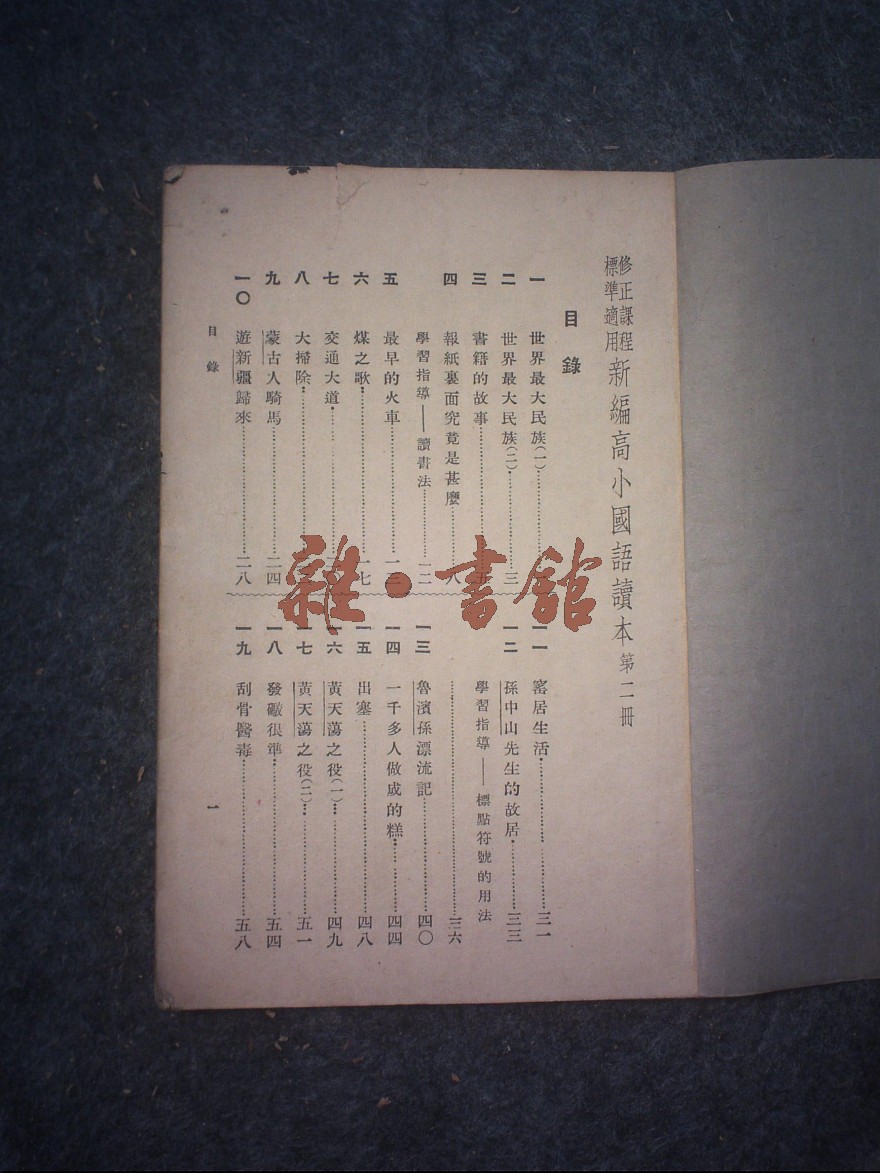 修正課程
標準適用
新編高小國語讀本第二冊
目錄
一 世界最大民族(一)
二 世界最大民族(二)…三
三 書籍的故事…五
四 報紙裏面究竟是甚麼…八
學習指導——讀書法…一二
五 最早的火車…一三
六 煤之歌…一七
七 交通大道
八 大掃除
九 蒙古人騎馬…二四
一〇 遊新疆歸來…二八
一一 窰居生活…三一
一二 孫中山先生的故居…三三
學習指導——標點符號的用法
…三六
一三 魯濱孫漂流記…四〇
一四 一千多人做成的糕…四四
一五 出塞…四八
一六 黃天蕩之役(一)…四九
一七 黃天蕩之役(二)…五一
一八 發礮很準…五四
一九 刮骨醫毒…五八
目錄
一
雜·書館